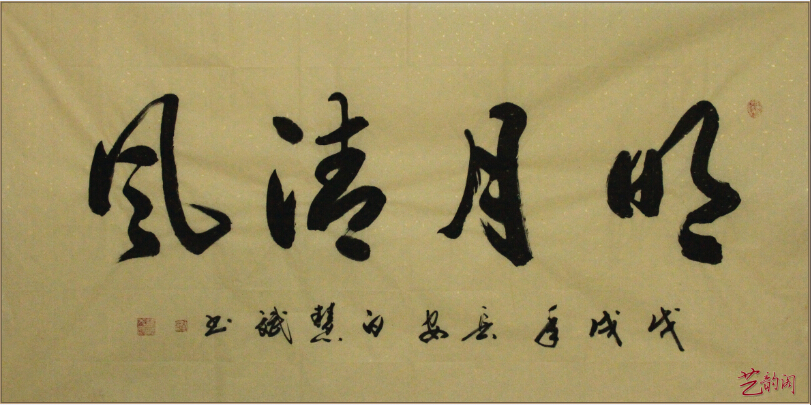 明月清风
戊戌年长安白慧斌书
艺韵阁